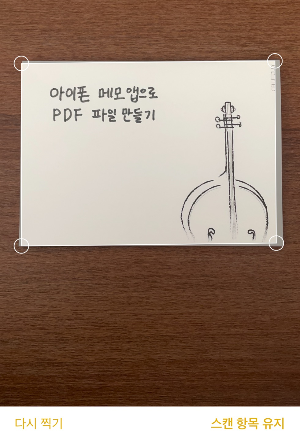 아이폰 메모 앱으로
PDF 파일 만들기
다시 찍기
스캔 항목 유지